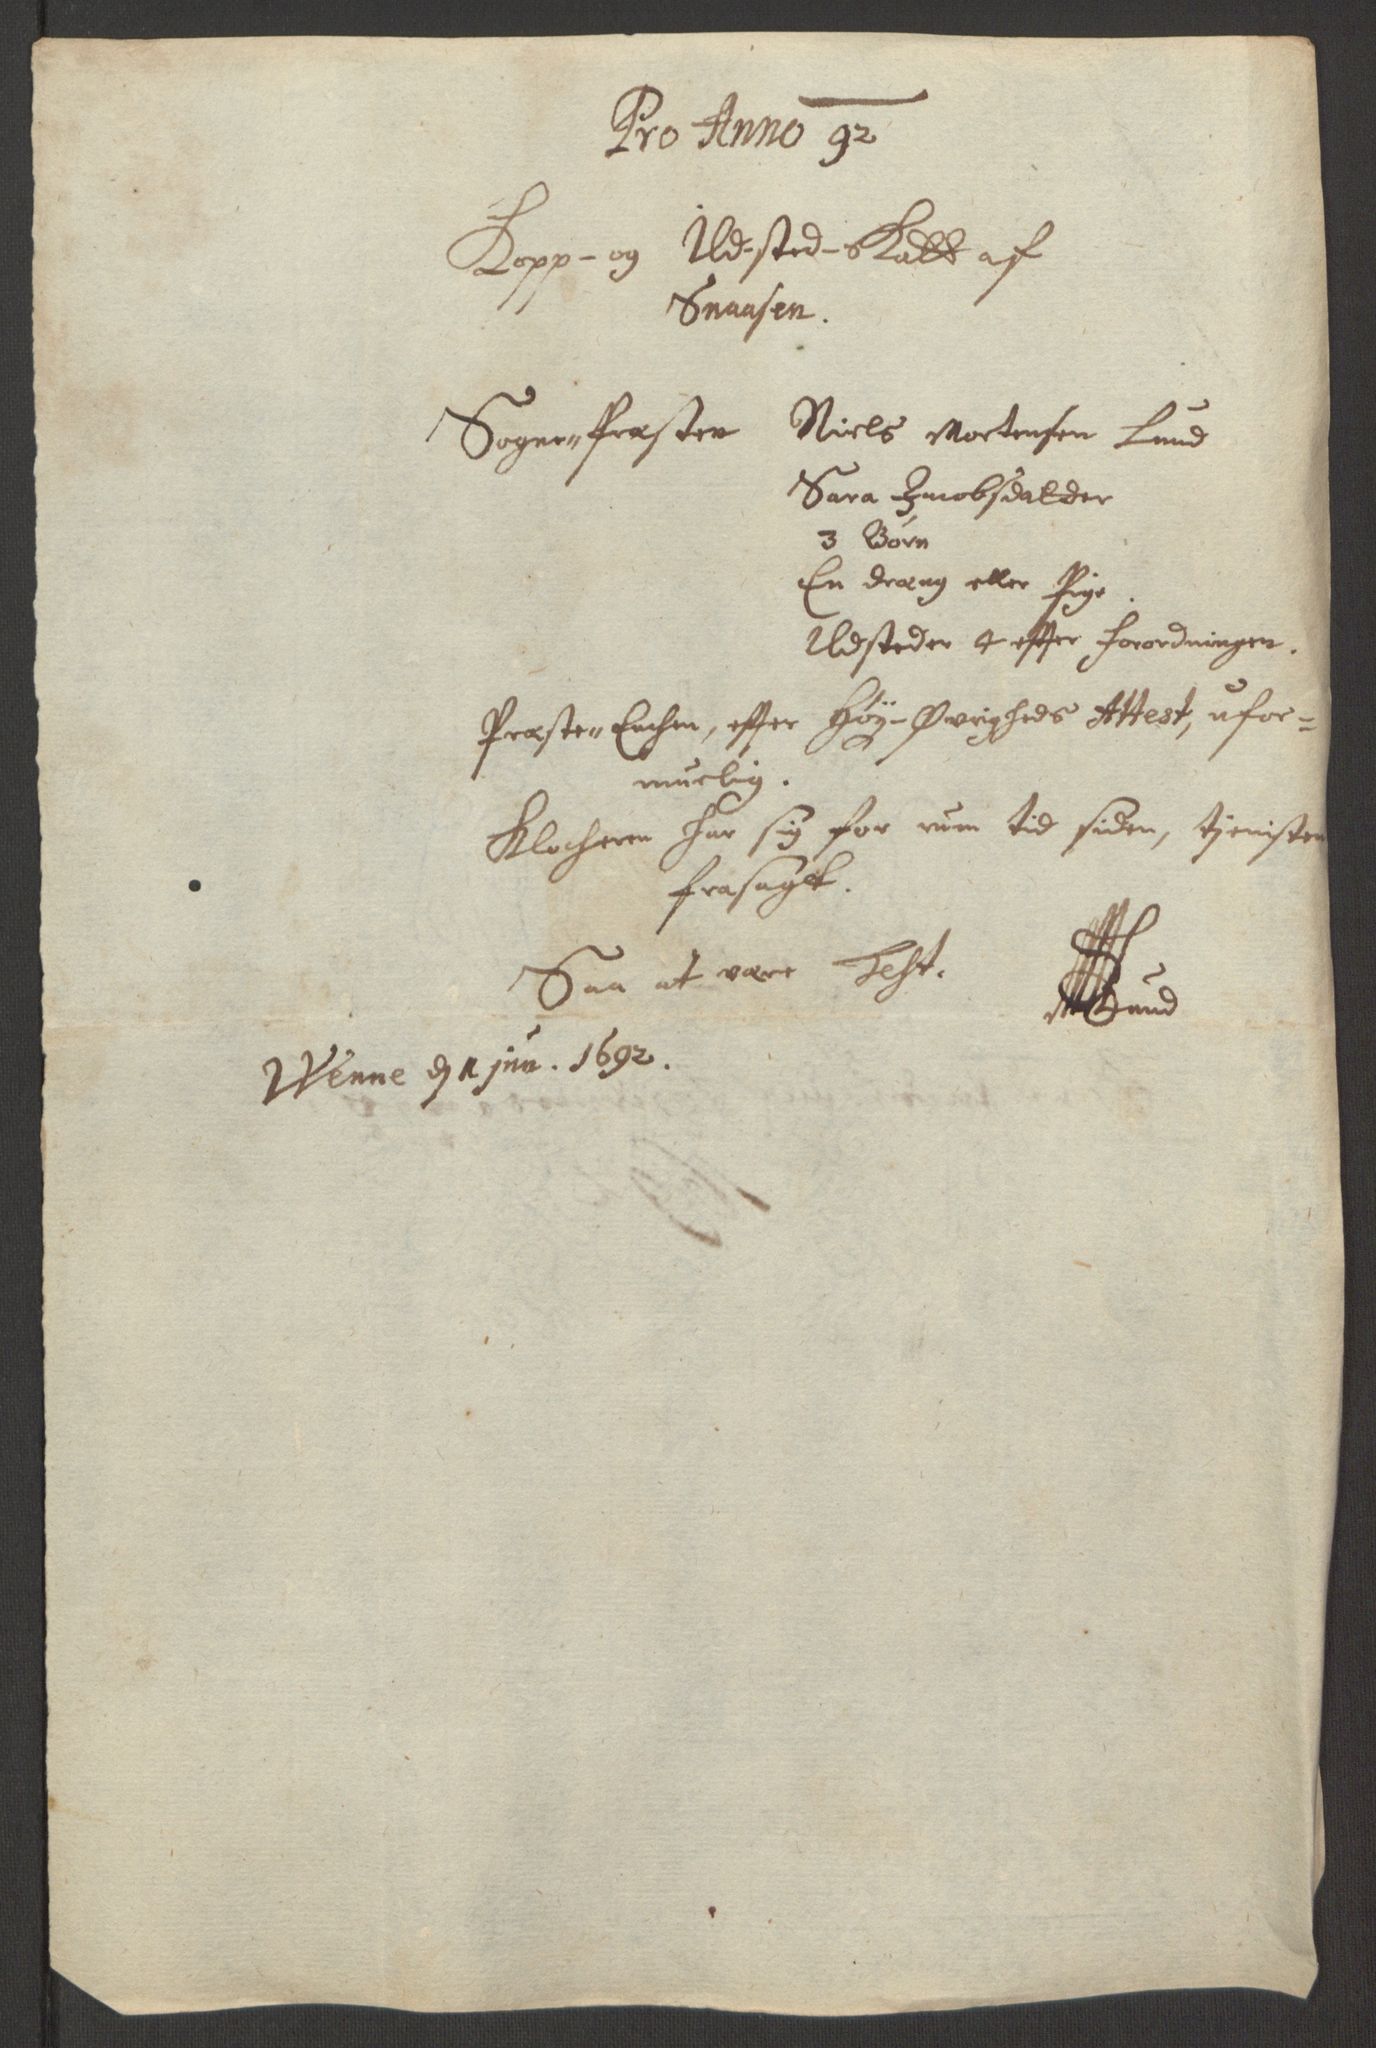 Pro Anno 92
Kopp- og Ild-sted-skatt af
Snaasen.
Sogne-Præsten Niels Mortensen Lund
Sara Jacobsdatter
3 Børn
En dreng eller Pige.
Ildsteder 4 effter forordningen.
Præste-Enchen, effter Høy-Øvrigheds Attest, ufor-
muelig.
Klocheren har sig for rum tid siden, tjenisten
frasagt.
Saa at være Test.
Lund
Wenne d jun. 1692.